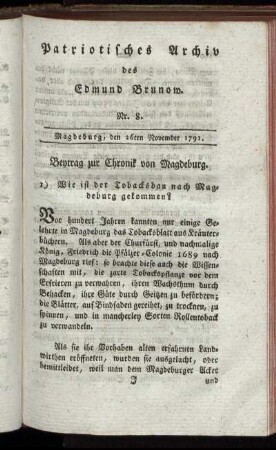 Patriotisches Archiv
des
Edmund Brunow.
Nr. 8.
Magdeburg, den 26sten November 1791.
Beytrag zur Chronik von Magdeburg.
1) Wie ist der Tobacksbau nach Mag-
deburg gekommen?
Vor hundert Jahren kannten nur einige Ge-
lehrte in Magdeburg das Tobacksblatt aus Kräuter-
büchern. Als aber der Churfürst, und nachmalige
König, Friedrich die Pfälzer-Colonie 1689 nach
Magdeburg rief: so brachte diese auch die Wissen-
schaften mit, die zarte Tobackspflanze vor dem
Erfrieren zu verwahren, ihren Wachsthum durch
Behacken, ihre Güte durch Geitzen zu befördern;
die Blätter, auf Bindfaden gereihet, zu trocknen, zu
spinnen, und in mancherley Sorten Rollentoback
zu verwandeln.
Als sie ihr Vorhaben alten erfahrnen Land-
wirthen eröffneten, wurden sie ausgelacht, oder
bemitleidet, weil man dem Magdeburger Acker
J und